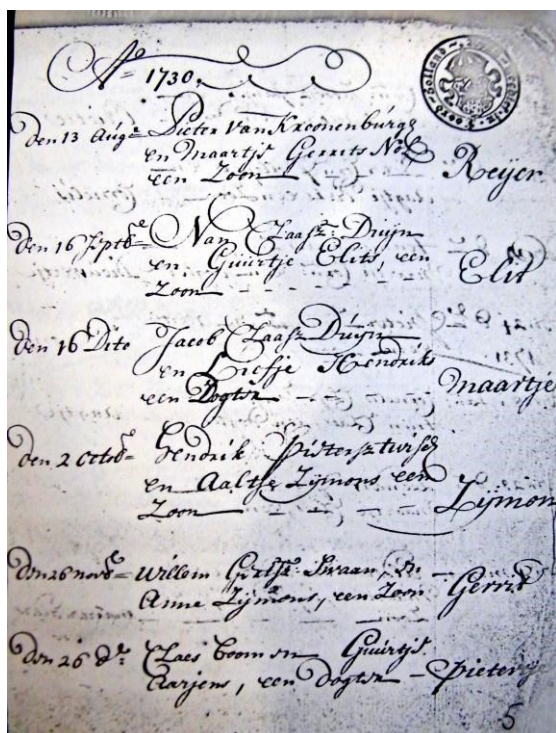 Ao 1730.
Den 13 Augs Pieter Van Kroonenburg
en Maartje Gerrits
een Zoon Reijer
Den 16 Septb Nan Claasz: Duijn
en Guurtje Elits, een
Zoon Elit
Den 16 Dito Jacob Claasz Duijn
en Liefje Hendriks
een Dogter Maartje
Den 2 Octob Hendrik Pietersz
en Aaltje Zijmons een
Zoon Zijmon
Den 26 novb Willem Swaan, en
Anne Zijmons, een Zoon Gerrit
Den 26 do: Claes Boom en Guurtje
Aarjens, een Dogter Pieter
5